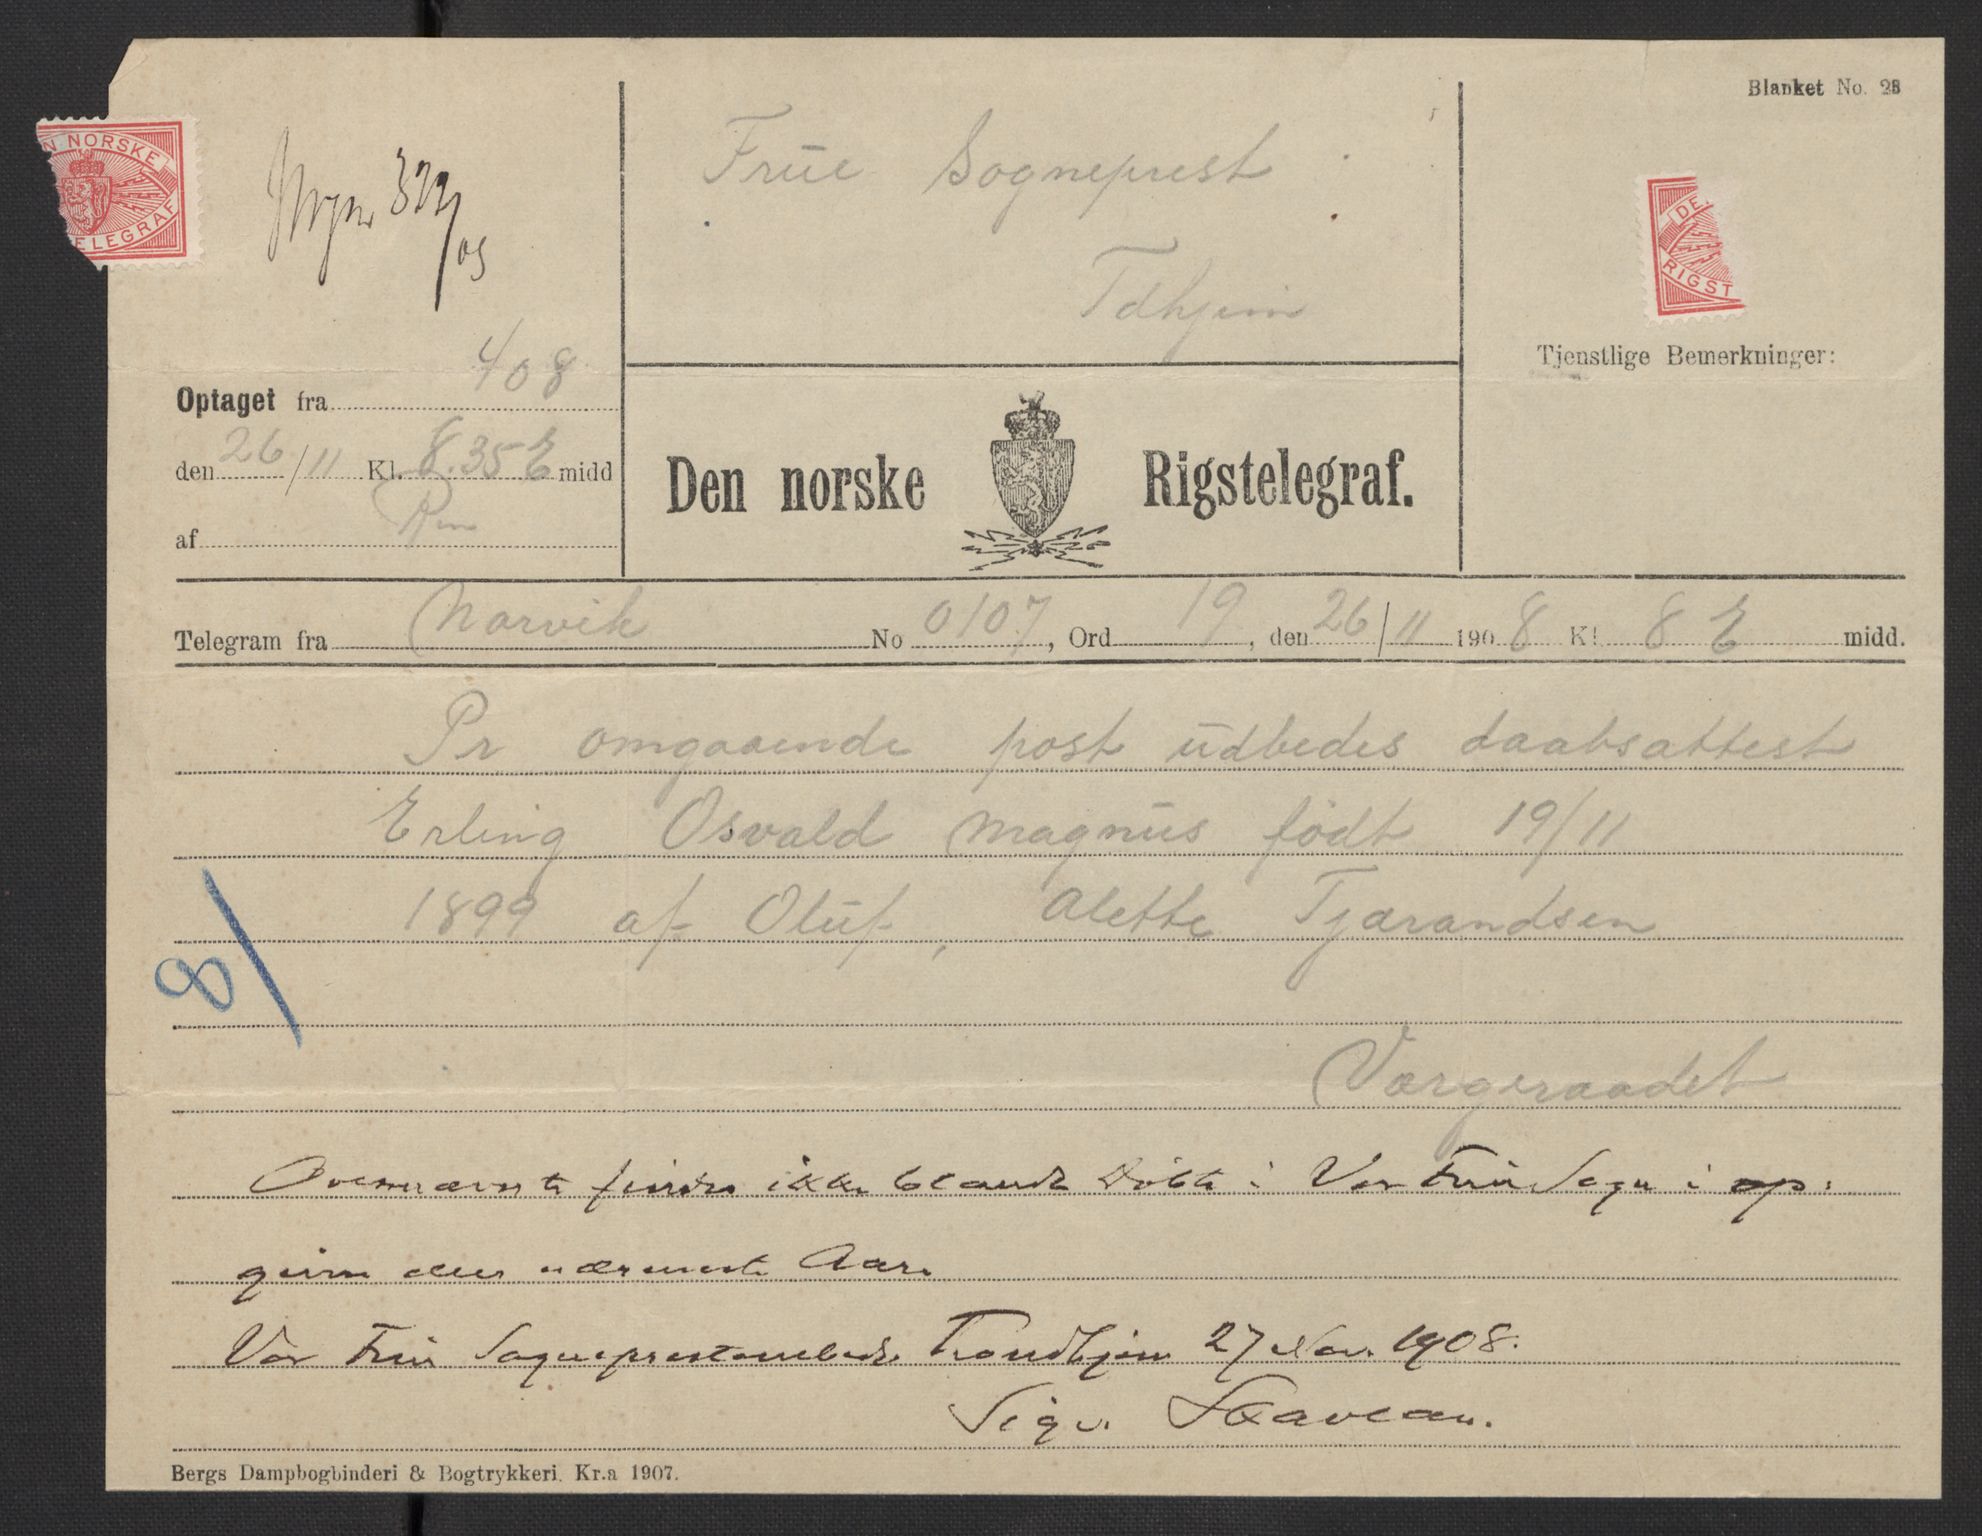 Blanket No. 25
N NORSKE
ELEGRAF
DE
RIGST
Jrnr 322/08
Frue Sogneprest
Tdhjem
Tjenstlige Bemerkninger:
Optaget fra 408
den 26/11 Kl. 8.35 E midd
af
Den norske Rigstelegraf.
Telegram fra Narvik No 0107, Ord 19, den 26/11 1908 Kl 8 E midd.
Pr omgaaende post udbedes daabsattest
Erling Osvald Magnus født 19/11
1899 af Oluf, Alette Tjærandsen
8/
Værgeraadet
Ovennævnte findes ikke blandt Døbte i Vor Frue Sogn i op-
givne eller nærmeste Aar.
Vor Frue Sogneprestembede Trondhjem 27 Nov. 1908.
Sigv. Skavlan.
Bergs Dampbogbinderi & Bogtrykkeri. Kr.a 1907.